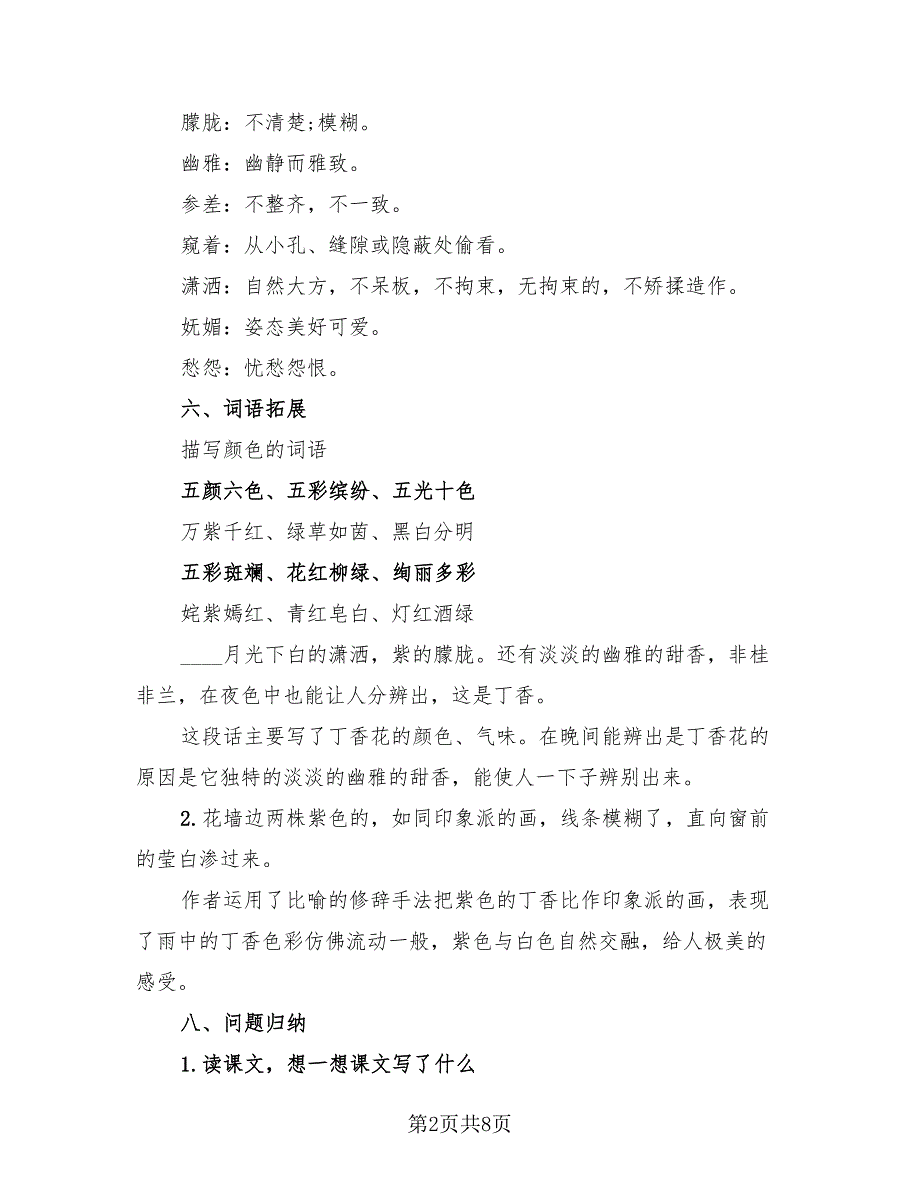 朦胧：不清楚;模糊。
幽雅：幽静而雅致。
参差：不整齐，不一致。
窥着：从小孔、缝隙或隐蔽处偷看。
潇洒：自然大方，不呆板，不拘束，无拘束的，不矫揉造作。
妩媚：姿态美好可爱。
愁怨：忧愁怨恨。
六、词语拓展
描写颜色的词语
五颜六色、五彩缤纷、五光十色
万紫千红、绿草如茵、黑白分明
五彩斑斓、花红柳绿、绚丽多彩
姹紫嫣红、青红皂白、灯红酒绿
____月光下白的潇洒，紫的朦胧。还有淡淡的幽雅的甜香，非桂
非兰，在夜色中也能让人分辨出，这是丁香。
这段话主要写了丁香花的颜色、气味。在晚间能辨出是丁香花的
原因是它独特的淡淡的幽雅的甜香，能使人一下子辨别出来。
2.花墙边两株紫色的，如同印象派的画，线条模糊了，直向窗前
的莹白渗过来。
作者运用了比喻的修辞手法把紫色的丁香比作印象派的画，表现
了雨中的丁香色彩仿佛流动一般，紫色与白色自然交融，给人极美的
感受。
八、问题归纳
1.读课文，想一想课文写了什么
第2页共8页